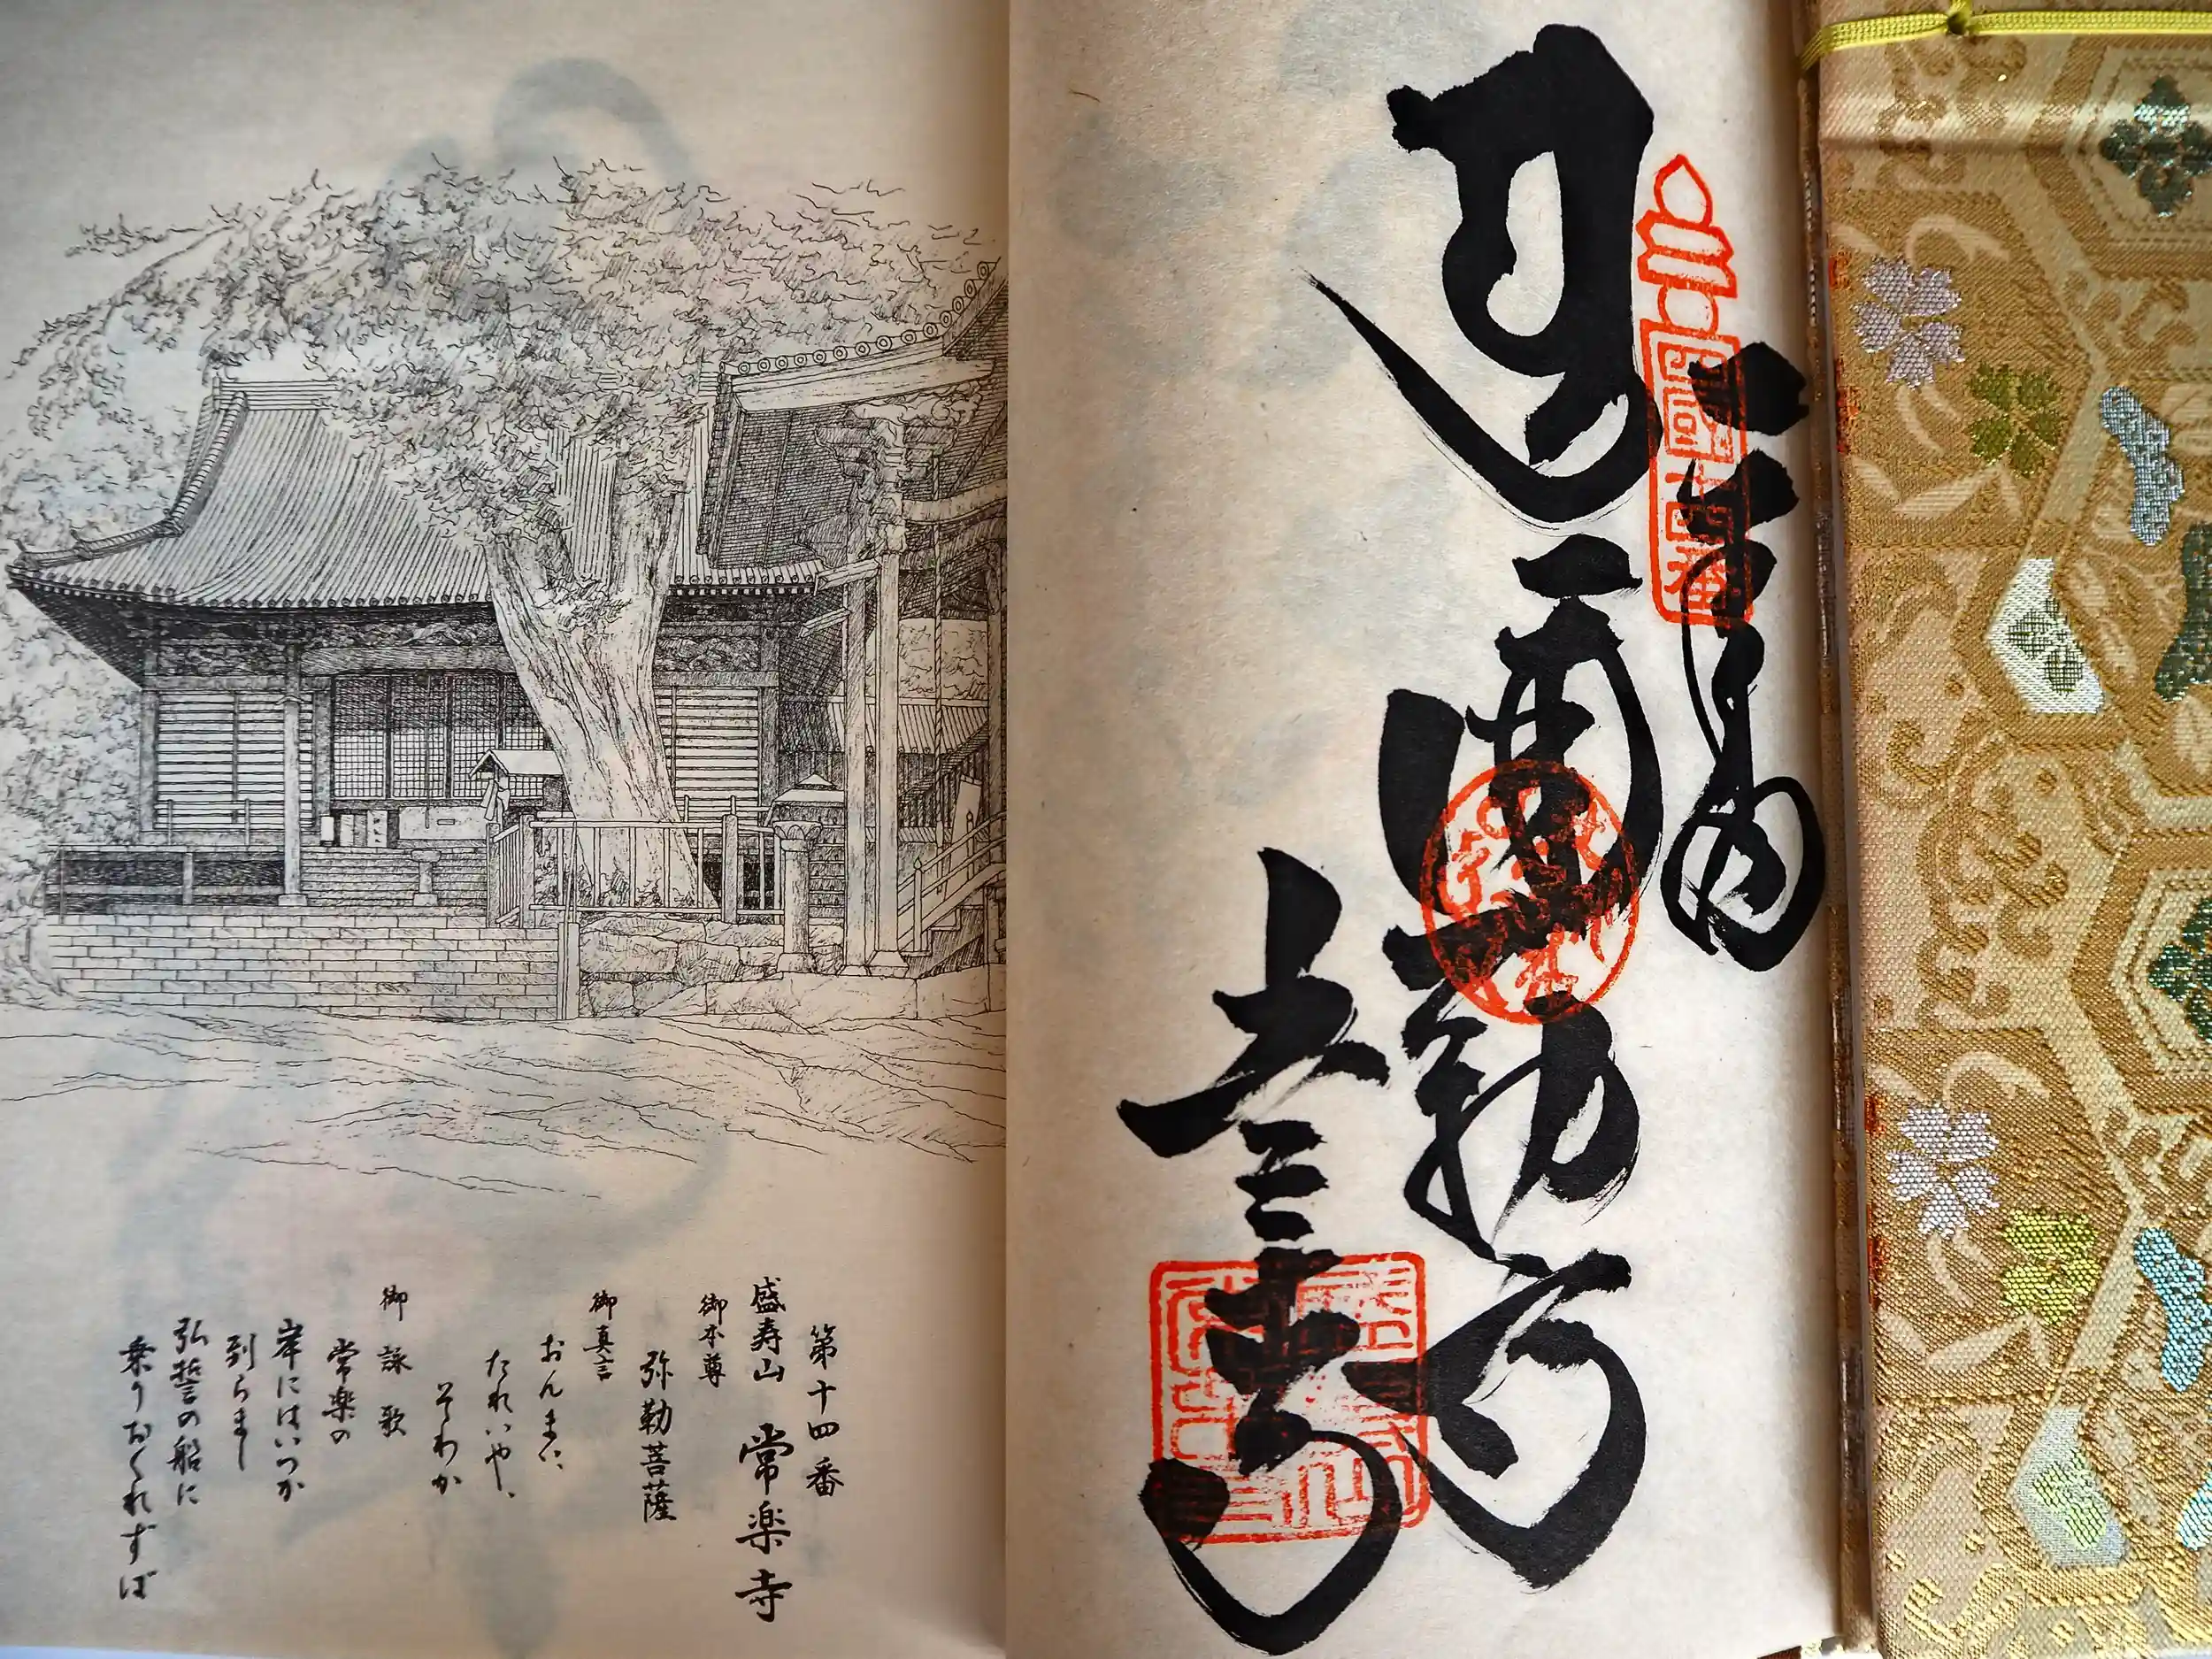 奉納
四国十四番
彌勒
常楽寺
第十四番
盛寿山 常楽寺
御本尊
弥勒菩薩
御真言
おんまい
たれいや、
そわか
御詠歌
常楽の
岸にはいつか
到らまし
弘誓の船に
乗りおくれずば